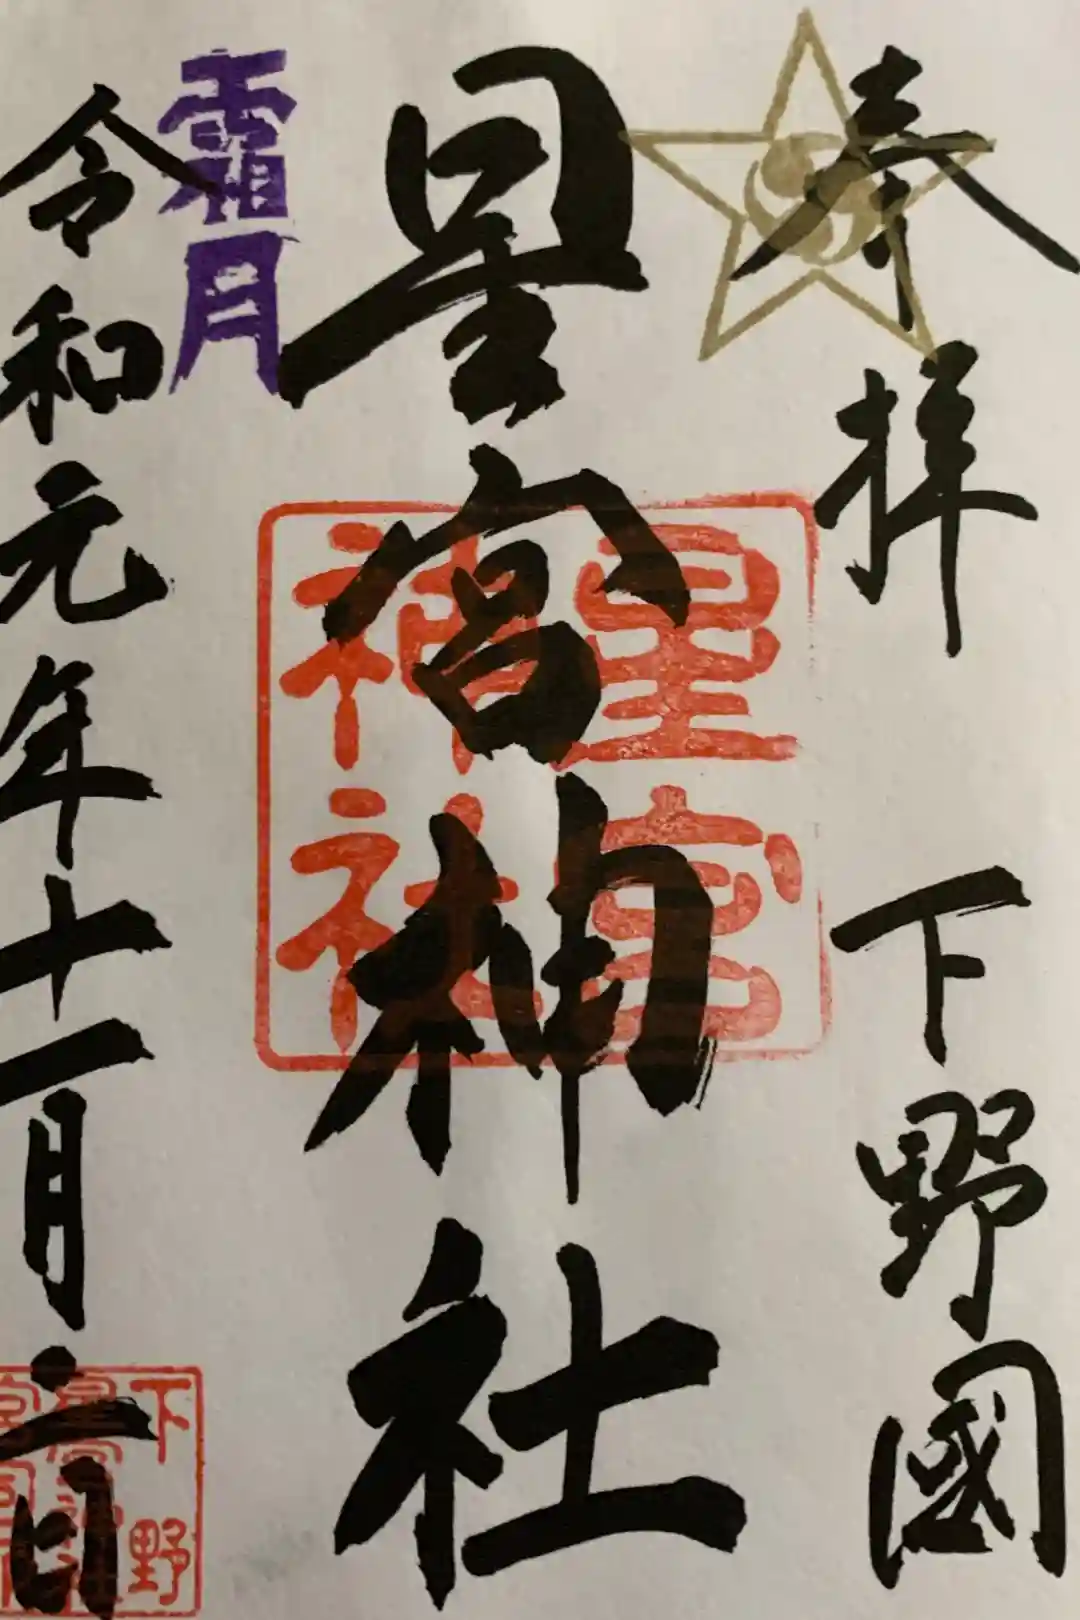 奉拝 下野國
星宮神社
星宮
神社
霜月
令和元年十一月二日
下野